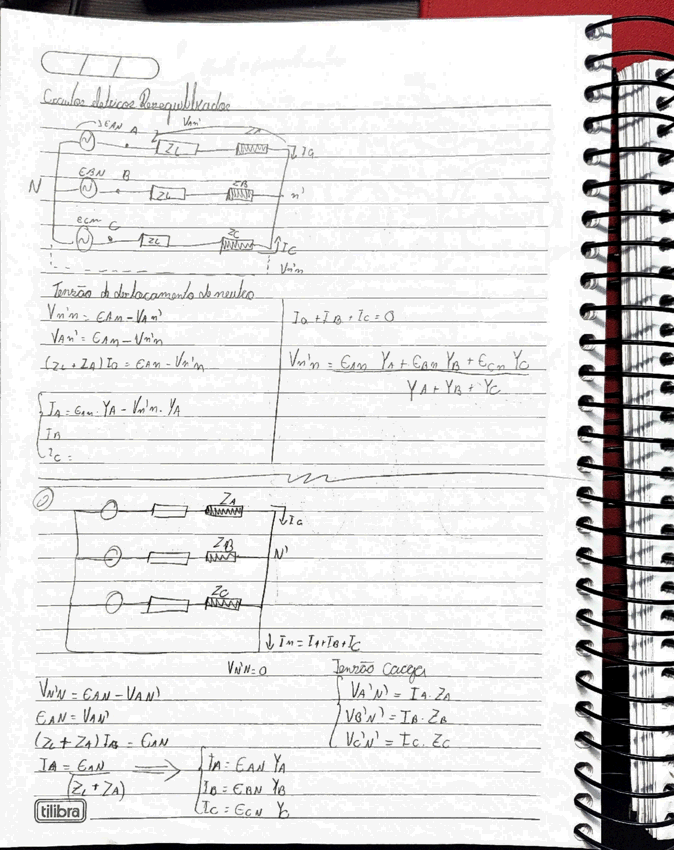 Circuitos elétricos Desequilibrados
EAN A VAn' ZA
ZL Ia
N EBN B ZB n'
ZL
ecn C ZC
ZL IC
Vn'n
Tensão de deslocamento de neutro
Vn'n = EAn - VAn'
VAn' = EAn - Vn'n
(ZL + ZA) Ia = EAn - Vn'n
IA = EAn . YA - Vn'n . YA
IB
IC =
Ia + IB + IC = 0
Vn'n = EAn YA + EBn YB + ECn YC
YA + YB + YC
ZA
Ia
ZB N'
ZC
In = IA+IB+IC
VN'N = 0
VN'N = EAN - VAN'
EAN = VAN'
(ZL + ZA) IA = EAN
IA = EAN
(ZL + ZA)
IA = EAN YA
IB = EBN YB
IC = ECN YC
Tensão Carga
VA'N' = IA . ZA
VB'N' = IB . ZB
VC'N' = IC . ZC
tilibra